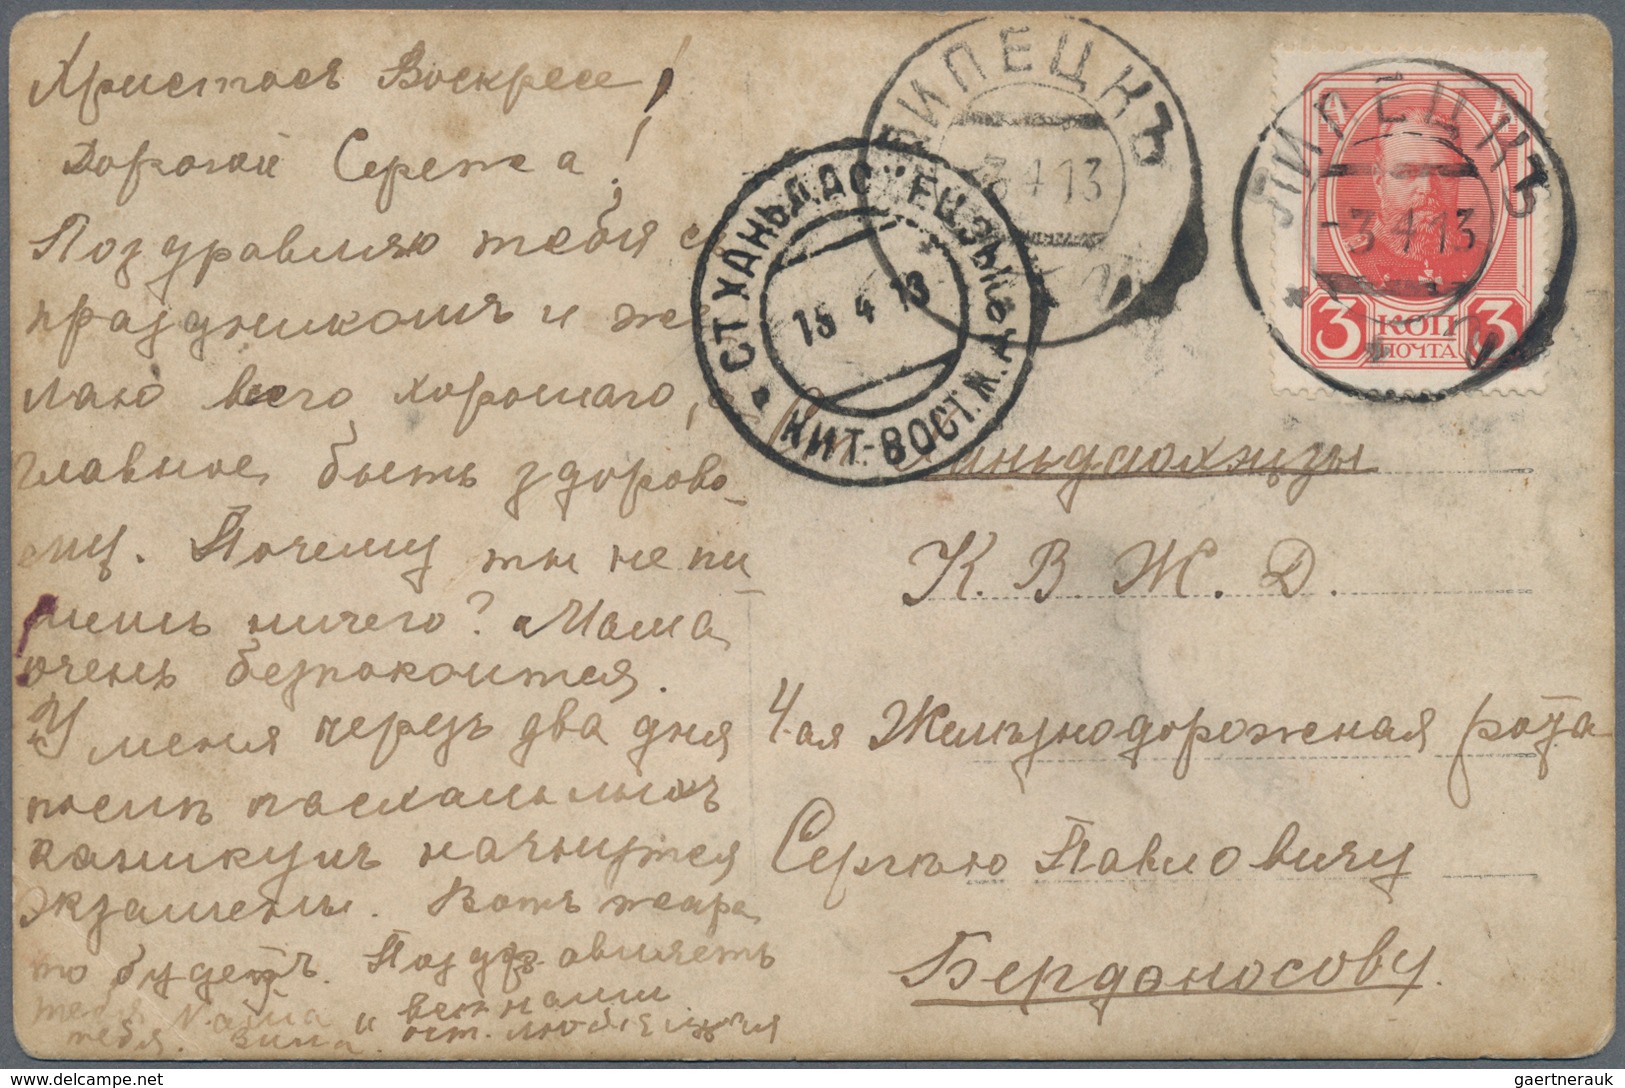 Христосъ Воскресе!
Дорогой Сережа!
Поздравляю тебя с
праздникомъ и же
лаю всего хорошаго,
главное, быть здорово-
му. Почему ты не пи
шешь ничего? Мама
очень безпокоится.
У меня черезъ два дня
послѣ пасхальныхъ
каникулъ начнутся
экзамены. Вотъ жара
то будетъ. Поздравляетъ
тебя
тебя. Зина. ост. любящая
ЛИПЕЦКЪ
-3 4 13
СТ ХАНЬДАОХЕЦЗЫ
15 4 13
КИТ.-ВОСТ. Ж. Д.
ЛИПЕЦКЪ
-3 4 13
3 КОП 3
ПОЧТА
Ханьдаохэцзы
К. В. Ж. Д.
4-ая Желѣзнодорожная рота
Сергѣю Павловичу
Берданосову.
gaertnerauk